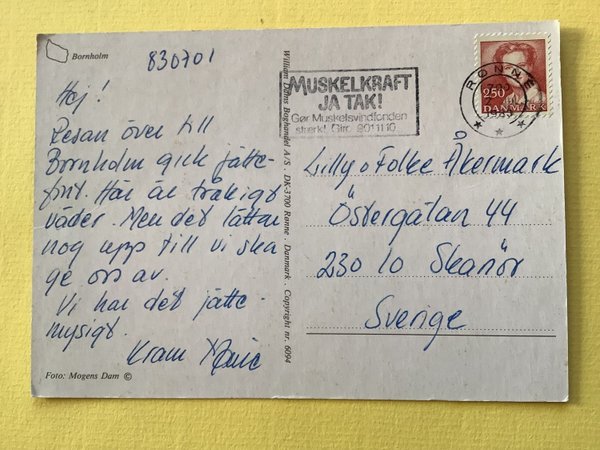 Bornholm
830701
Hej!
Resan över till
Bornholm gick jätte-
fint. Här är tråkigt
väder. Men det lättar
nog upp till vi ska
ge oss av.
Vi har det jätte-
mysigt.
Kram
Foto: Mogens Dam ©
William Dams Boghandel A/S . DK-3700 Rønne . Danmark . Copyright nr. 6094
MUSKELKRAFT
JA TAK!
Gør Muskelsvindfonden
stærk! Giro 9011110
RØNNE
250
DANMARK
Lilly o Folke Åkermark
Östergatan 44
230 10 Skanör
Sverige